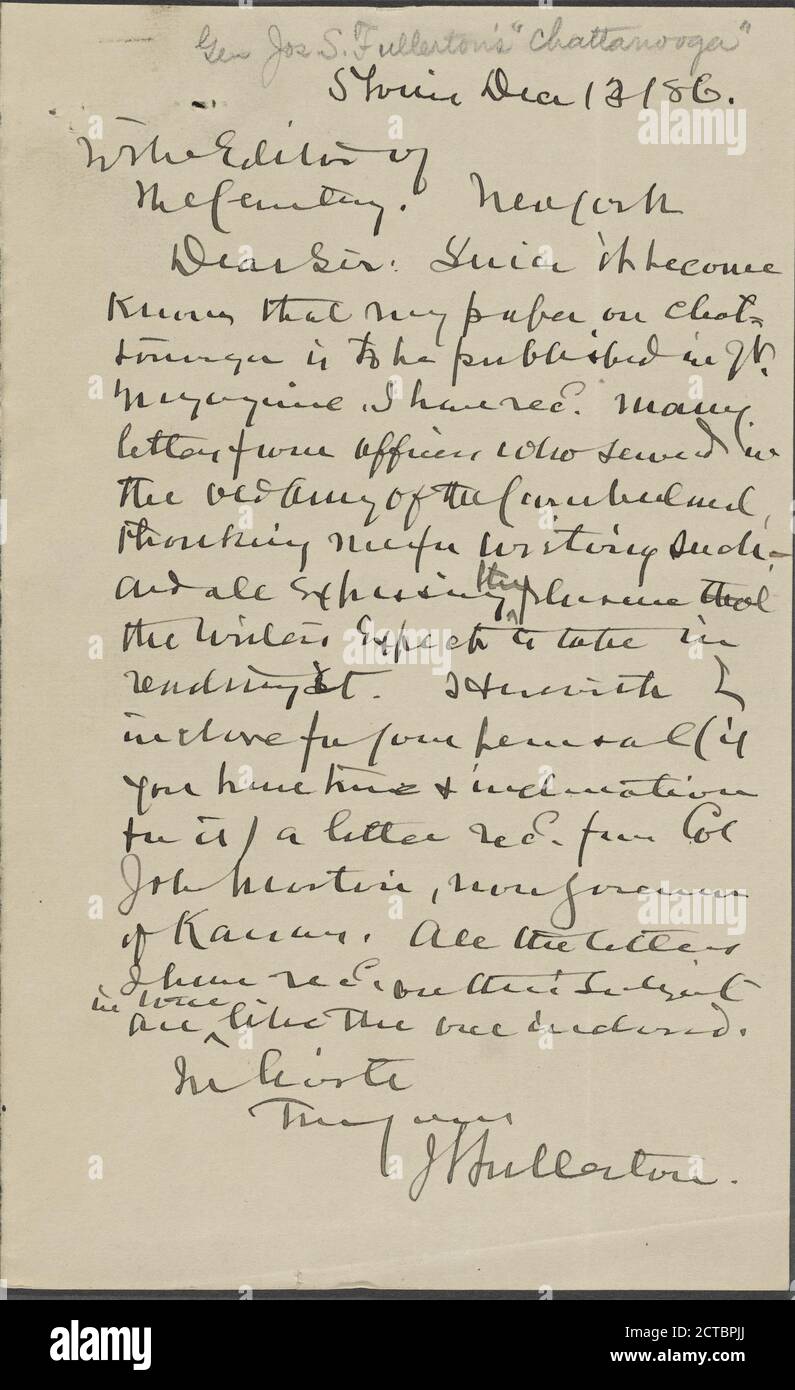 Gen Jos S. Fullerton's "Chattanooga"
St Louis Dec 13 / 86.
To the Editor of
The Century. New York
Dear Sir: Since it become
known that my paper on Chat-
tanooga is to be published in yr.
Magazine, I have recd. many
letters from officers who served in
the old Army of the Cumberland,
thanking me for writing such-
and all expressing the pleasure that
the writers expect to take in
reading it. Herewith I
inclose for your perusal (if
you have time & inclination
for it) a letter recd. from Col
John Martin, now Governor
of Kansas. All the letters
I have recd. on this subject
are in tone like the one inclosed.
In haste
Truly yours
J S Fullerton.
alamy
Image ID: 2CTBPJJ
www.alamy.com